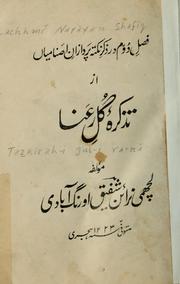 Lachhmi Narayan Shafiq
فصل دوم در ذکر نکته پردازان اصنامیاں
از
تذکرۂ گل رعنا
Tazkirah-i gul-i raʻnā
مولفہ
لچھمی نرائن شفیق اورنگ آبادی
متوفی ۱۲۲۳ ہجری